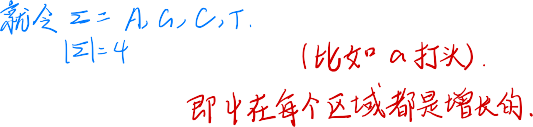 就令 Σ = A, G, C, T.
|Σ|=4
(比如 a 打头).
即 ψ 在每个区域都是增长的.